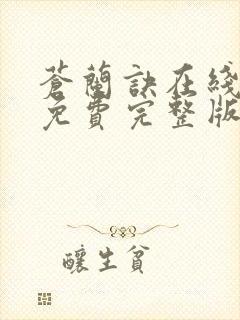 蒼蘭訣在綫
免費完整版
釀生貧